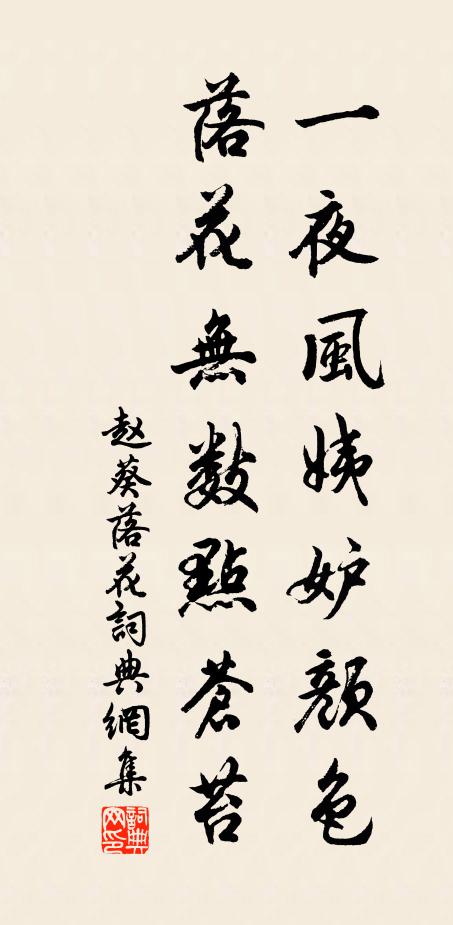 一夜風姨妒顏色
落花無数點蒼苔
赵葵落花詞典網集
詞典网印